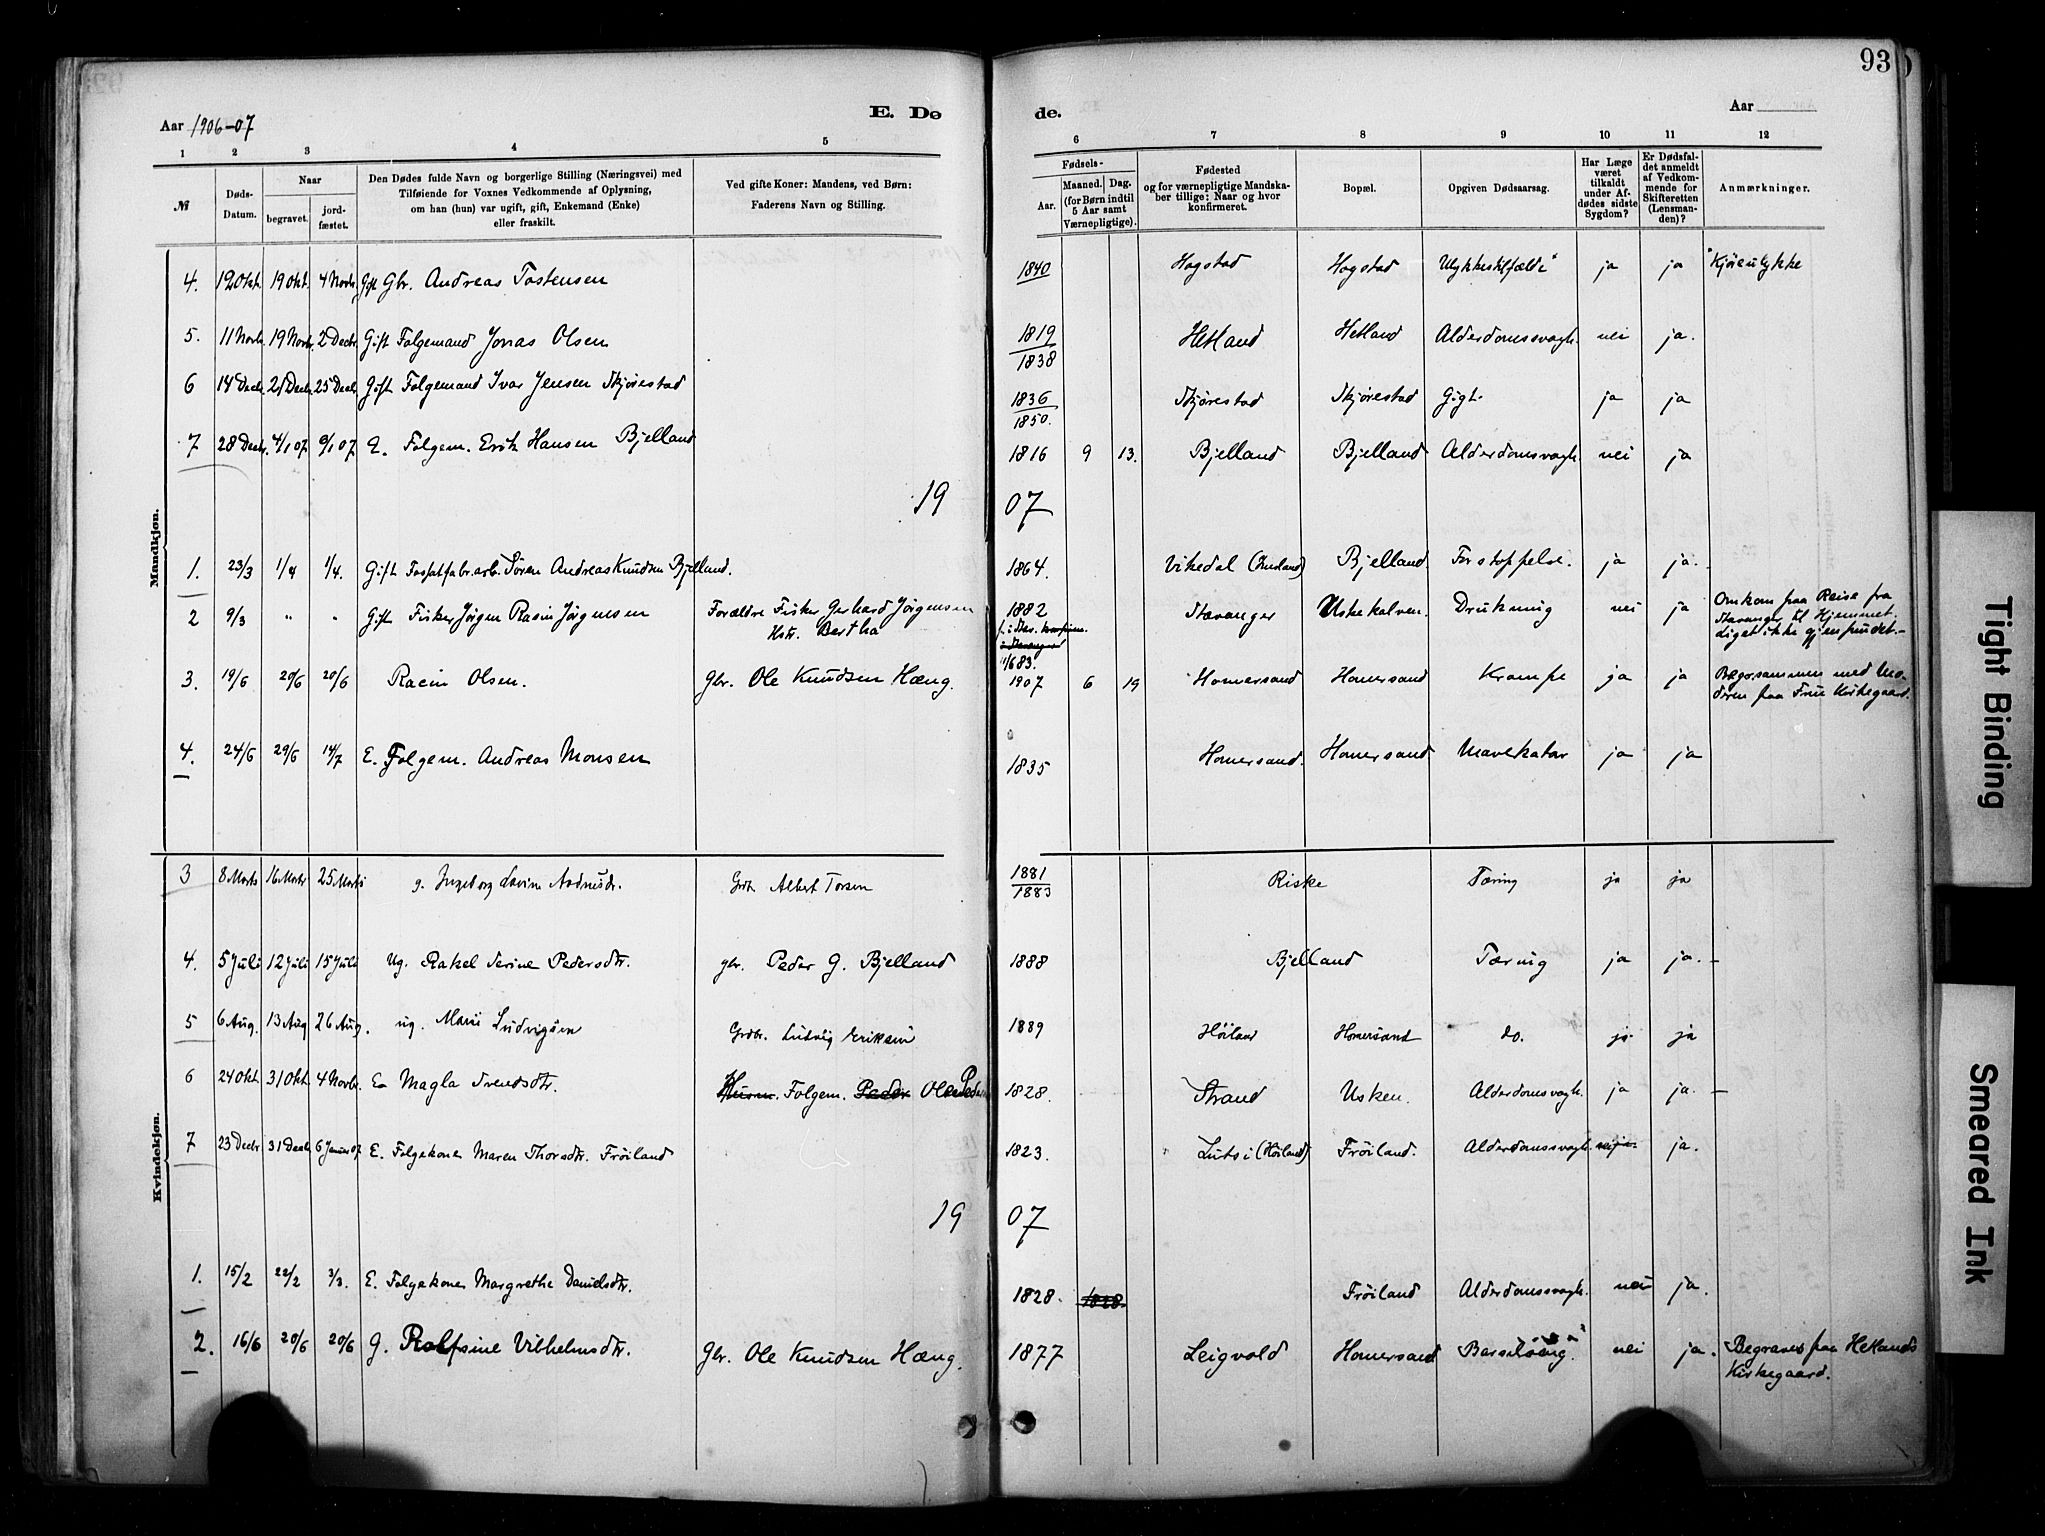 93
Aar 1906-07
E. Dø
de.
Aar
1 2 3 4 5
6 7 8 9 10 11 12
№
Døds-Datum.
Naar
begravet.
jord-fæstet.
Den Dødes fulde Navn og borgerlige Stilling (Næringsvei) med
Tilføiende for Voxnes Vedkommende af Oplysning,
om han (hun) var ugift, gift, Enkemand (Enke)
eller fraskilt.
Ved gifte Koner: Mandens, ved Børn:
Faderens Navn og Stilling.
Fødsels-
Aar.
Maaned. Dag.
(for Børn indtil
5 Aar samt
Værnepligtige).
Fødested
og for værnepligtige Mandska-
ber tillige: Naar og hvor
konfirmeret.
Bopæl.
Opgiven Dødsaarsag.
Har Læge
været
tilkaldt
under Af-
dødes sidste
Sygdom?
Er Dødsfal-
det anmeldt
af Vedkom-
mende for
Skifteretten
(Lensman-
den)?
Anmærkninger.
Mandkjøn.
4. 12 Okt. 19 Okt. 4 Novb. Gift Gbr. Andreas Tostensen 1840 Hogstad Hogstad Ulykkestilfælde" ja ja "Kjøreulykke
5. 11 Novb. 19 Novb. 2 Decbr. Gift Folgemand Jonas Olsen 1819 Hetland Hetland Alderdomssvagh. nei ja.
1838
6 14 Decbr. 21 Decbr. 25 Decbr. Gift Folgemand Ivar Jensen Skjørestad 1836 Skjørestad Skjørestad Gigt. ja ja
1850.
7 28 Decbr. 4/1 07 9/1 07 E. Folgem. Erik Hansen Bjelland 1816 9 13. Bjelland Bjelland Alderdomsvagh. nei ja
19 07
1. 23/3 1/4 1/4. Gift Fosfatfabr.arb. Søren Andreas Knudsen Bjelland. 1864. Vikedal (Ømland) Bjelland Forstoppelse. ja ja.
2 9/3 " " Gift Fisker Jørgen Rasin Jørgensen Forældre Fisker Gerhard Jørgensen 1882 Stavanger Uskekalven. Drukning nei ja Omkom paa Reise fra
Hstr. Bertha
Stavanger til Hjemmet.
Liget ikke gjenfundet.-
11/6 83.
3. 19/6 20/6 20/6 Rasin Olsen. Gbr. Ole Knudsen Hæng. 1907 6 19 Homersand Homersand Krampe ja ja Begr. sammen med Mo-
deren paa Frue Kirkegaard.
4. 24/6 29/6 14/7 E. Folgem. Andreas Monsen 1835 Homersand. Homersand Mavekatar ja ja
Kvindekjøn.
3 8 Marts 16 Marts 25 Marts g. Ingeborg Lovine Aadnesdr. Grdbr. Albert Torsen 1881 Riske Tæring ja ja
1883
4. 5 Juli 12 Juli 15 Juli Ug. Rakel Serine Pedersdtr. gbr. Peder G. Bjelland 1888 Bjelland Tæring ja ja. -
5 6 Aug. 13 Aug 26 Aug. ug. Marie Ludvigsen Grdbr. Ludvig Eriksen 1889 Høiland Homersand do. ja ja
6 24 Okt. 31 Okt. 4 Novbr. E. Magla Svendsdtr. Husm. Folgem. Peder Ole Pedersen 1828. Strand Usken. Alderdomsvagh. ja ja. -
7 23 Decbr 31 Decbr 6 Januar 07 E. Folgekone Maren Thorsdtr. Frøiland 1823. Lutsi (Høiland) Frøiland. Alderdomssvagh. ja.
19 07
1. 15/2 22/2 3/3. E. Folgekone Margrethe Danielsdtr. 1828. 1828. Frøiland Alderdomssvagh. nei ja.
2. 16/6 20/6 20/6 G. Rolfsine Vilhelmsdtr. Gbr. Ole Knudsen Hæng. 1877 Leigvold Homersand Barselseng" nei ja. Begraves paa Hetlands
Kirkegaard.
Tight Binding
Smeared Ink